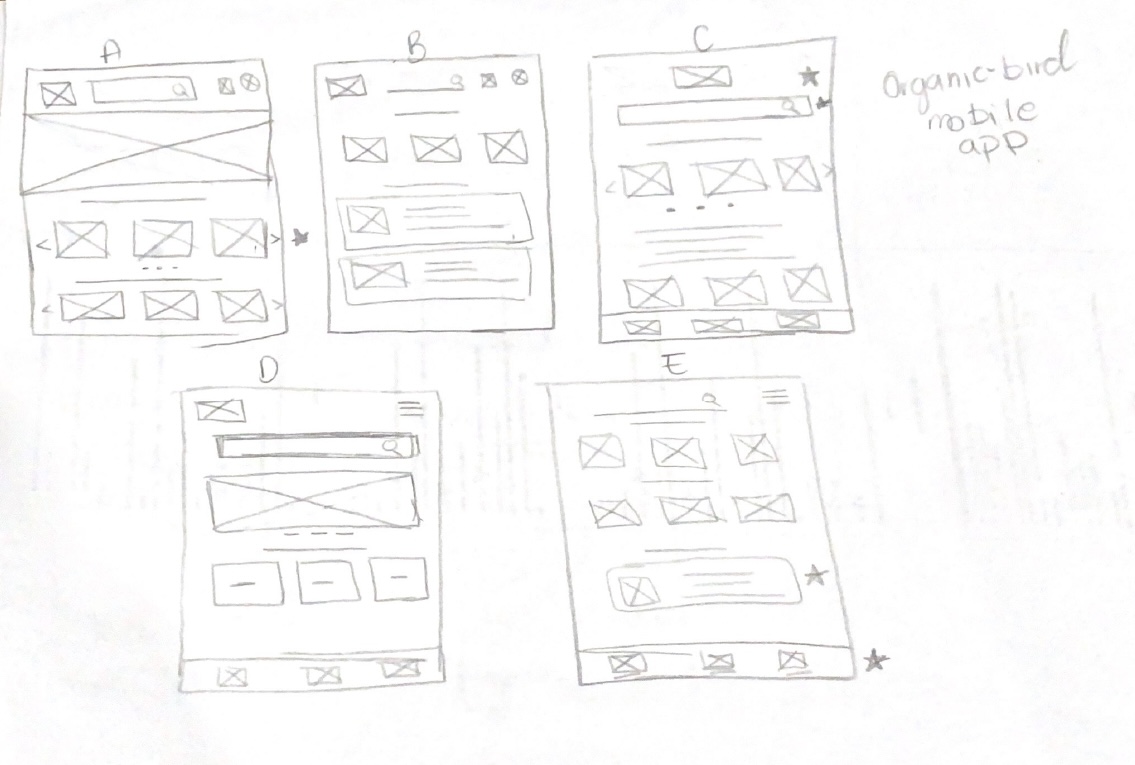 A
B
C
Organic-bird
mobile
app
D
E